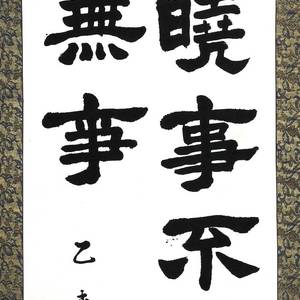 曉事不
無事
乙